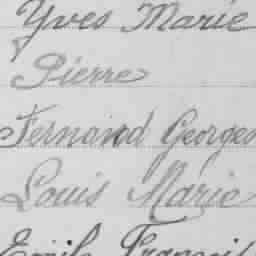 Yves Marie
Pierre
Fernand Georges
Louis Marie
Emile François